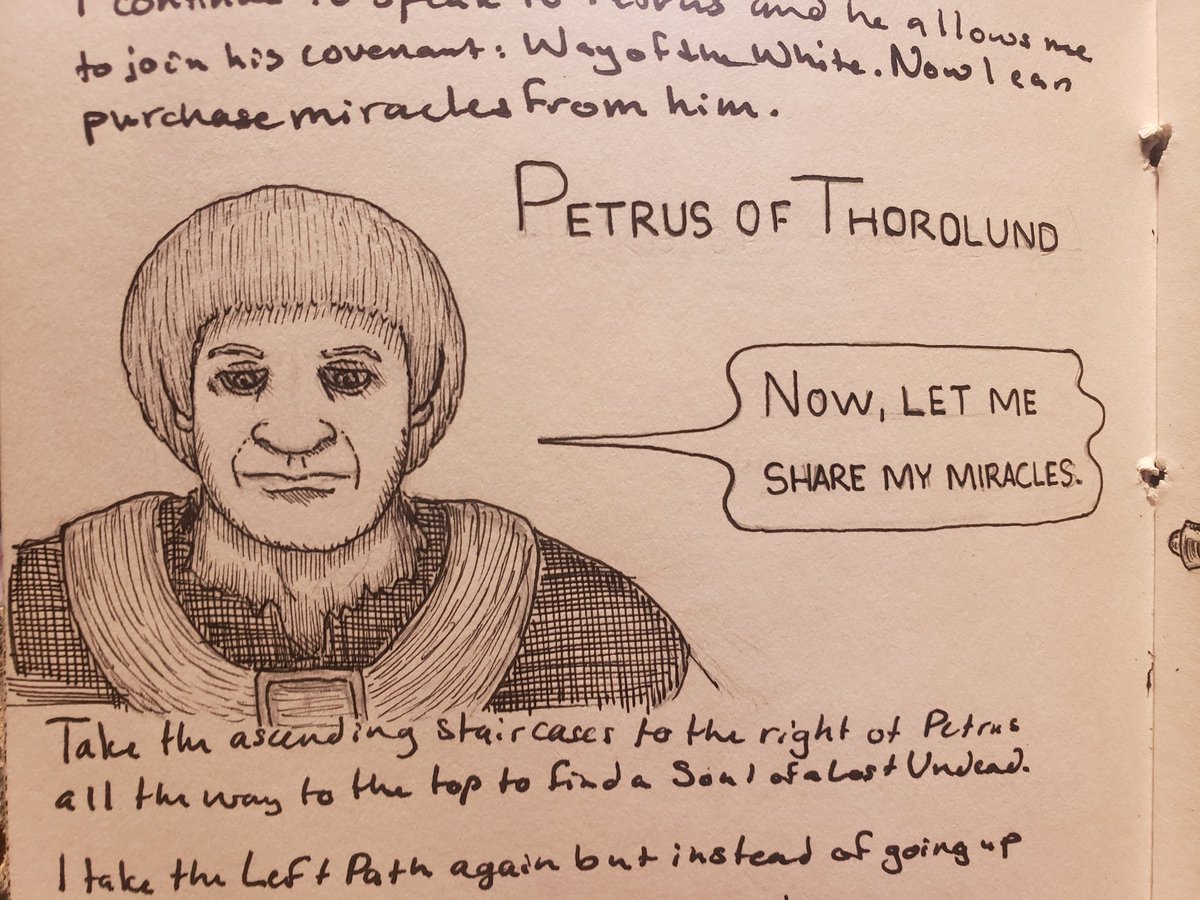 I continue to speak to Petrus and he allows me
to join his covenant: Way of the White. Now I can
purchase miracles from him.
PETRUS OF THOROLUND
NOW, LET ME
SHARE MY MIRACLES.
Take the ascending staircases to the right of Petrus
all the way to the top to find a Soul of a Lost Undead.
I take the Left Path again but instead of going up